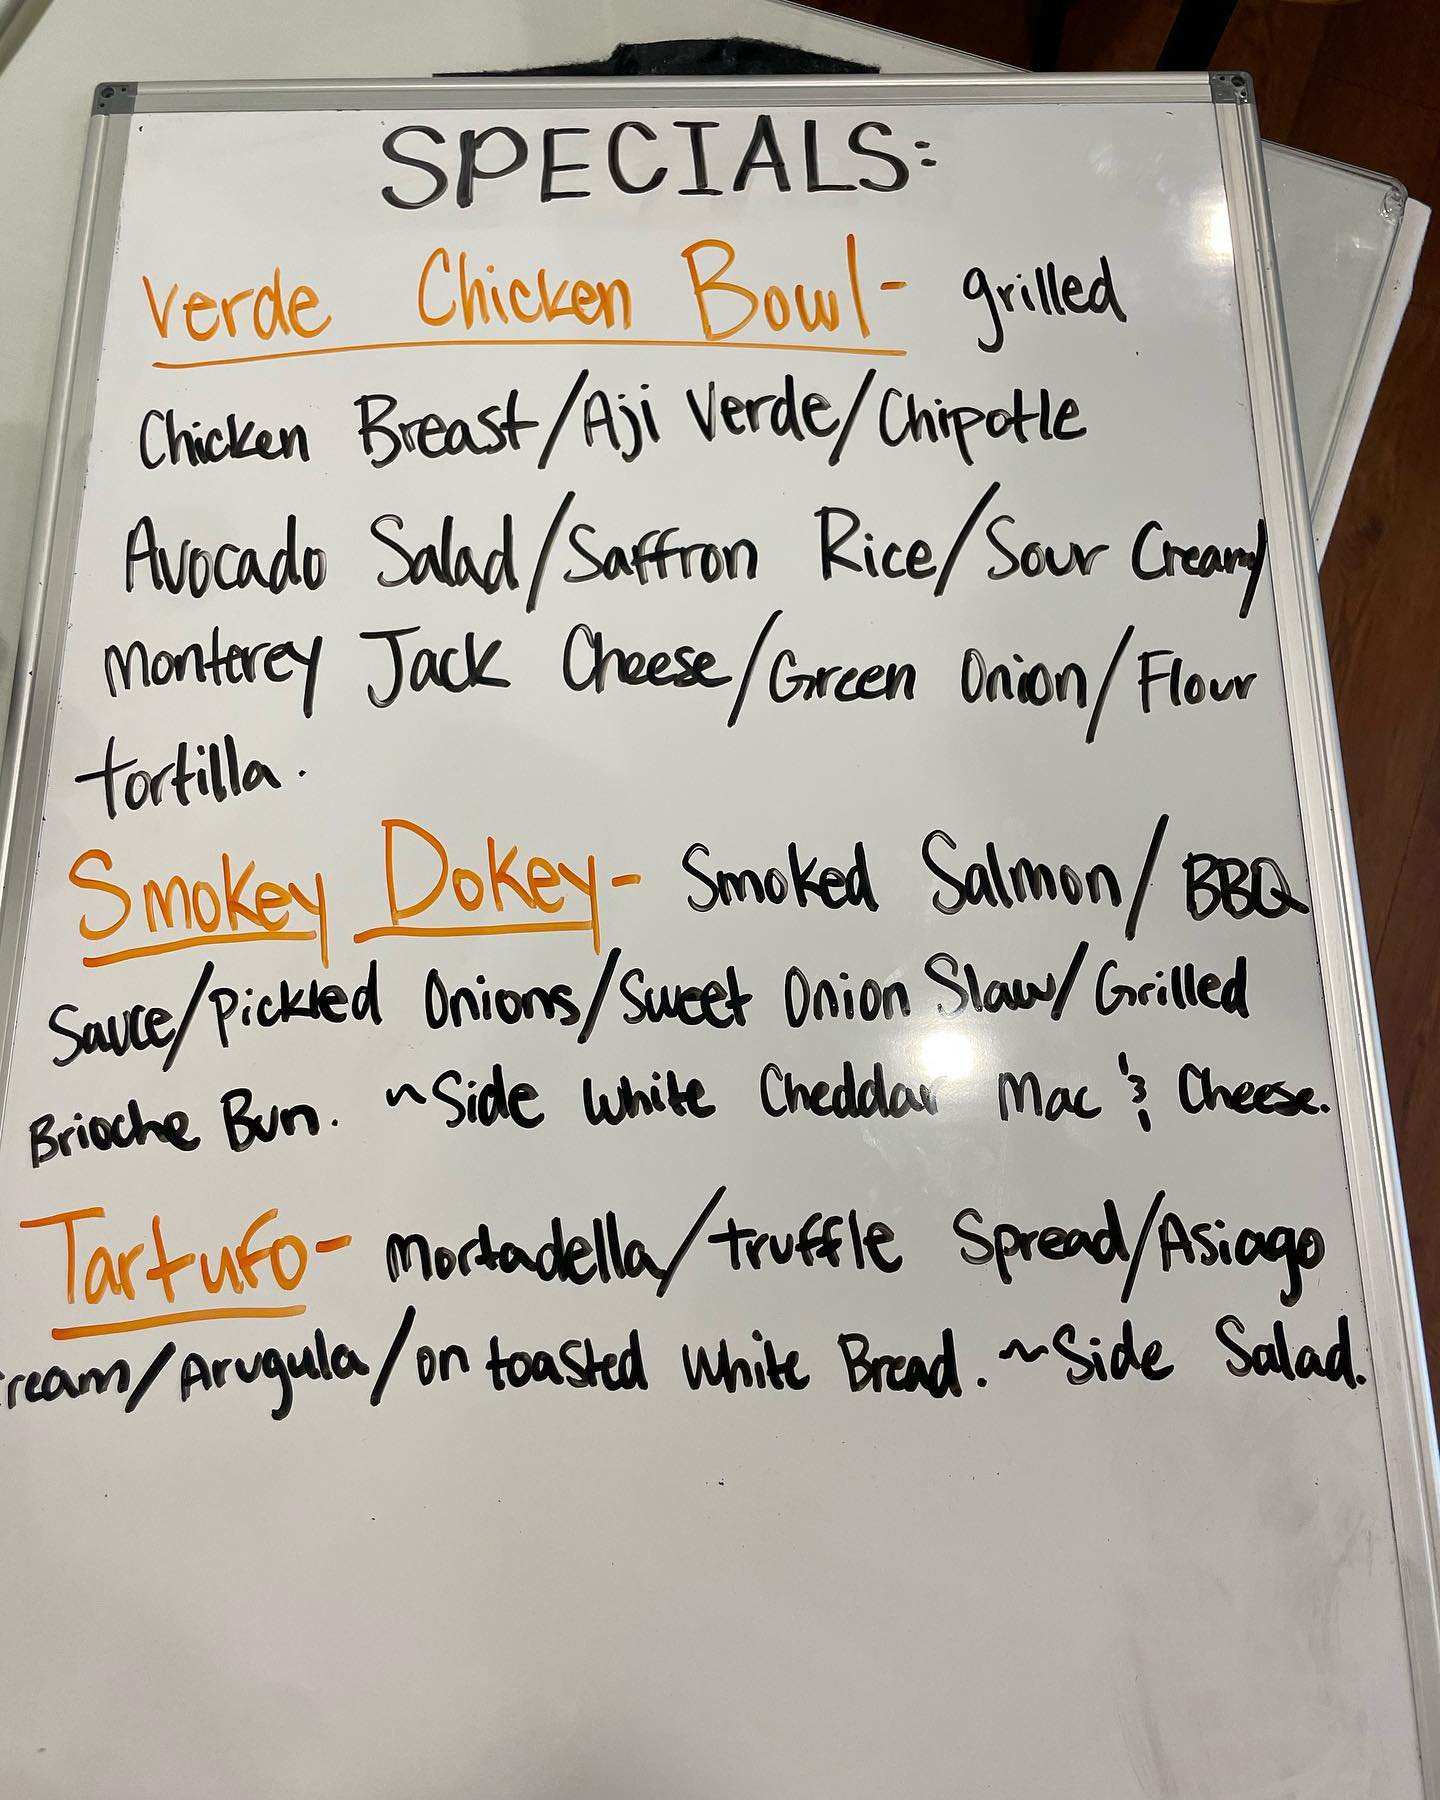 SPECIALS:
Verde Chicken Bowl- grilled
Chicken Breast/Aji Verde/Chipotle
Avocado Salad/Saffron Rice/Sour Cream/
Monterey Jack Cheese/Green Onion/Flour
tortilla.
Smokey Dokey- Smoked Salmon/BBQ
Sauce/Pickled Onions/Sweet Onion Slaw/Grilled
Brioche Bun. ~Side White Cheddar Mac & Cheese.
Tartufo- Mortadella/truffle Spread/Asiago
ream/Arugula/on toasted White Bread. ~Side Salad.